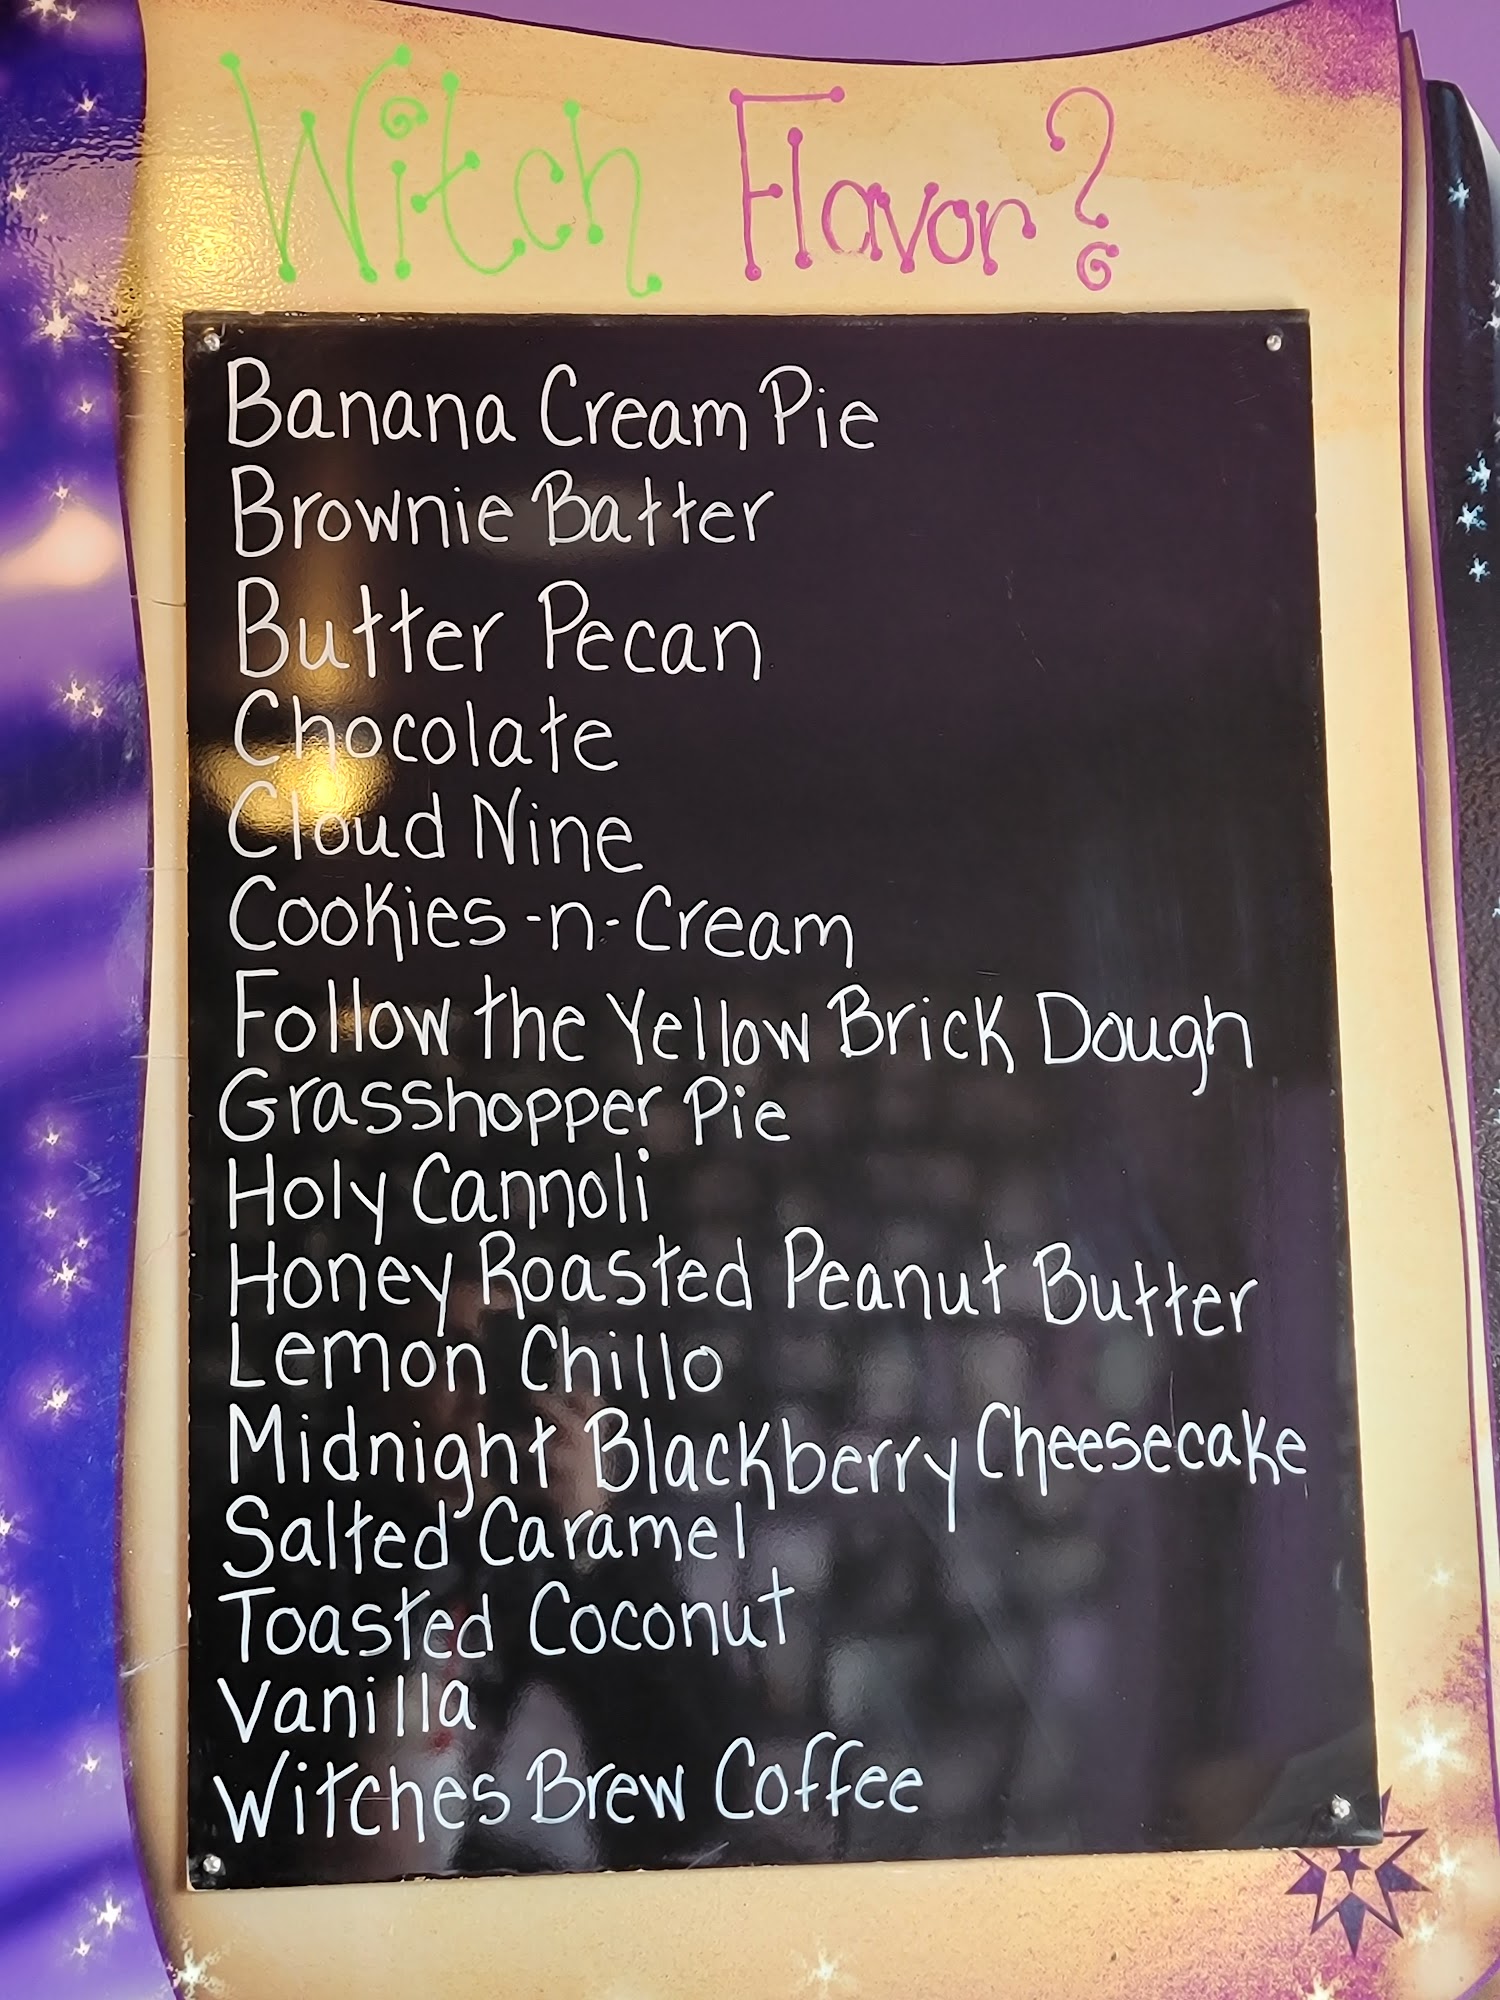 Witch Flavor?
Banana Cream Pie
Brownie Batter
Butter Pecan
Chocolate
Cloud Nine
Cookies-n-Cream
Follow the Yellow Brick Dough
Grasshopper Pie
Holy Cannoli
Honey Roasted Peanut Butter
Lemon Chillo
Midnight Blackberry Cheesecake
Salted Caramel
Toasted Coconut
Vanilla
Witches Brew Coffee